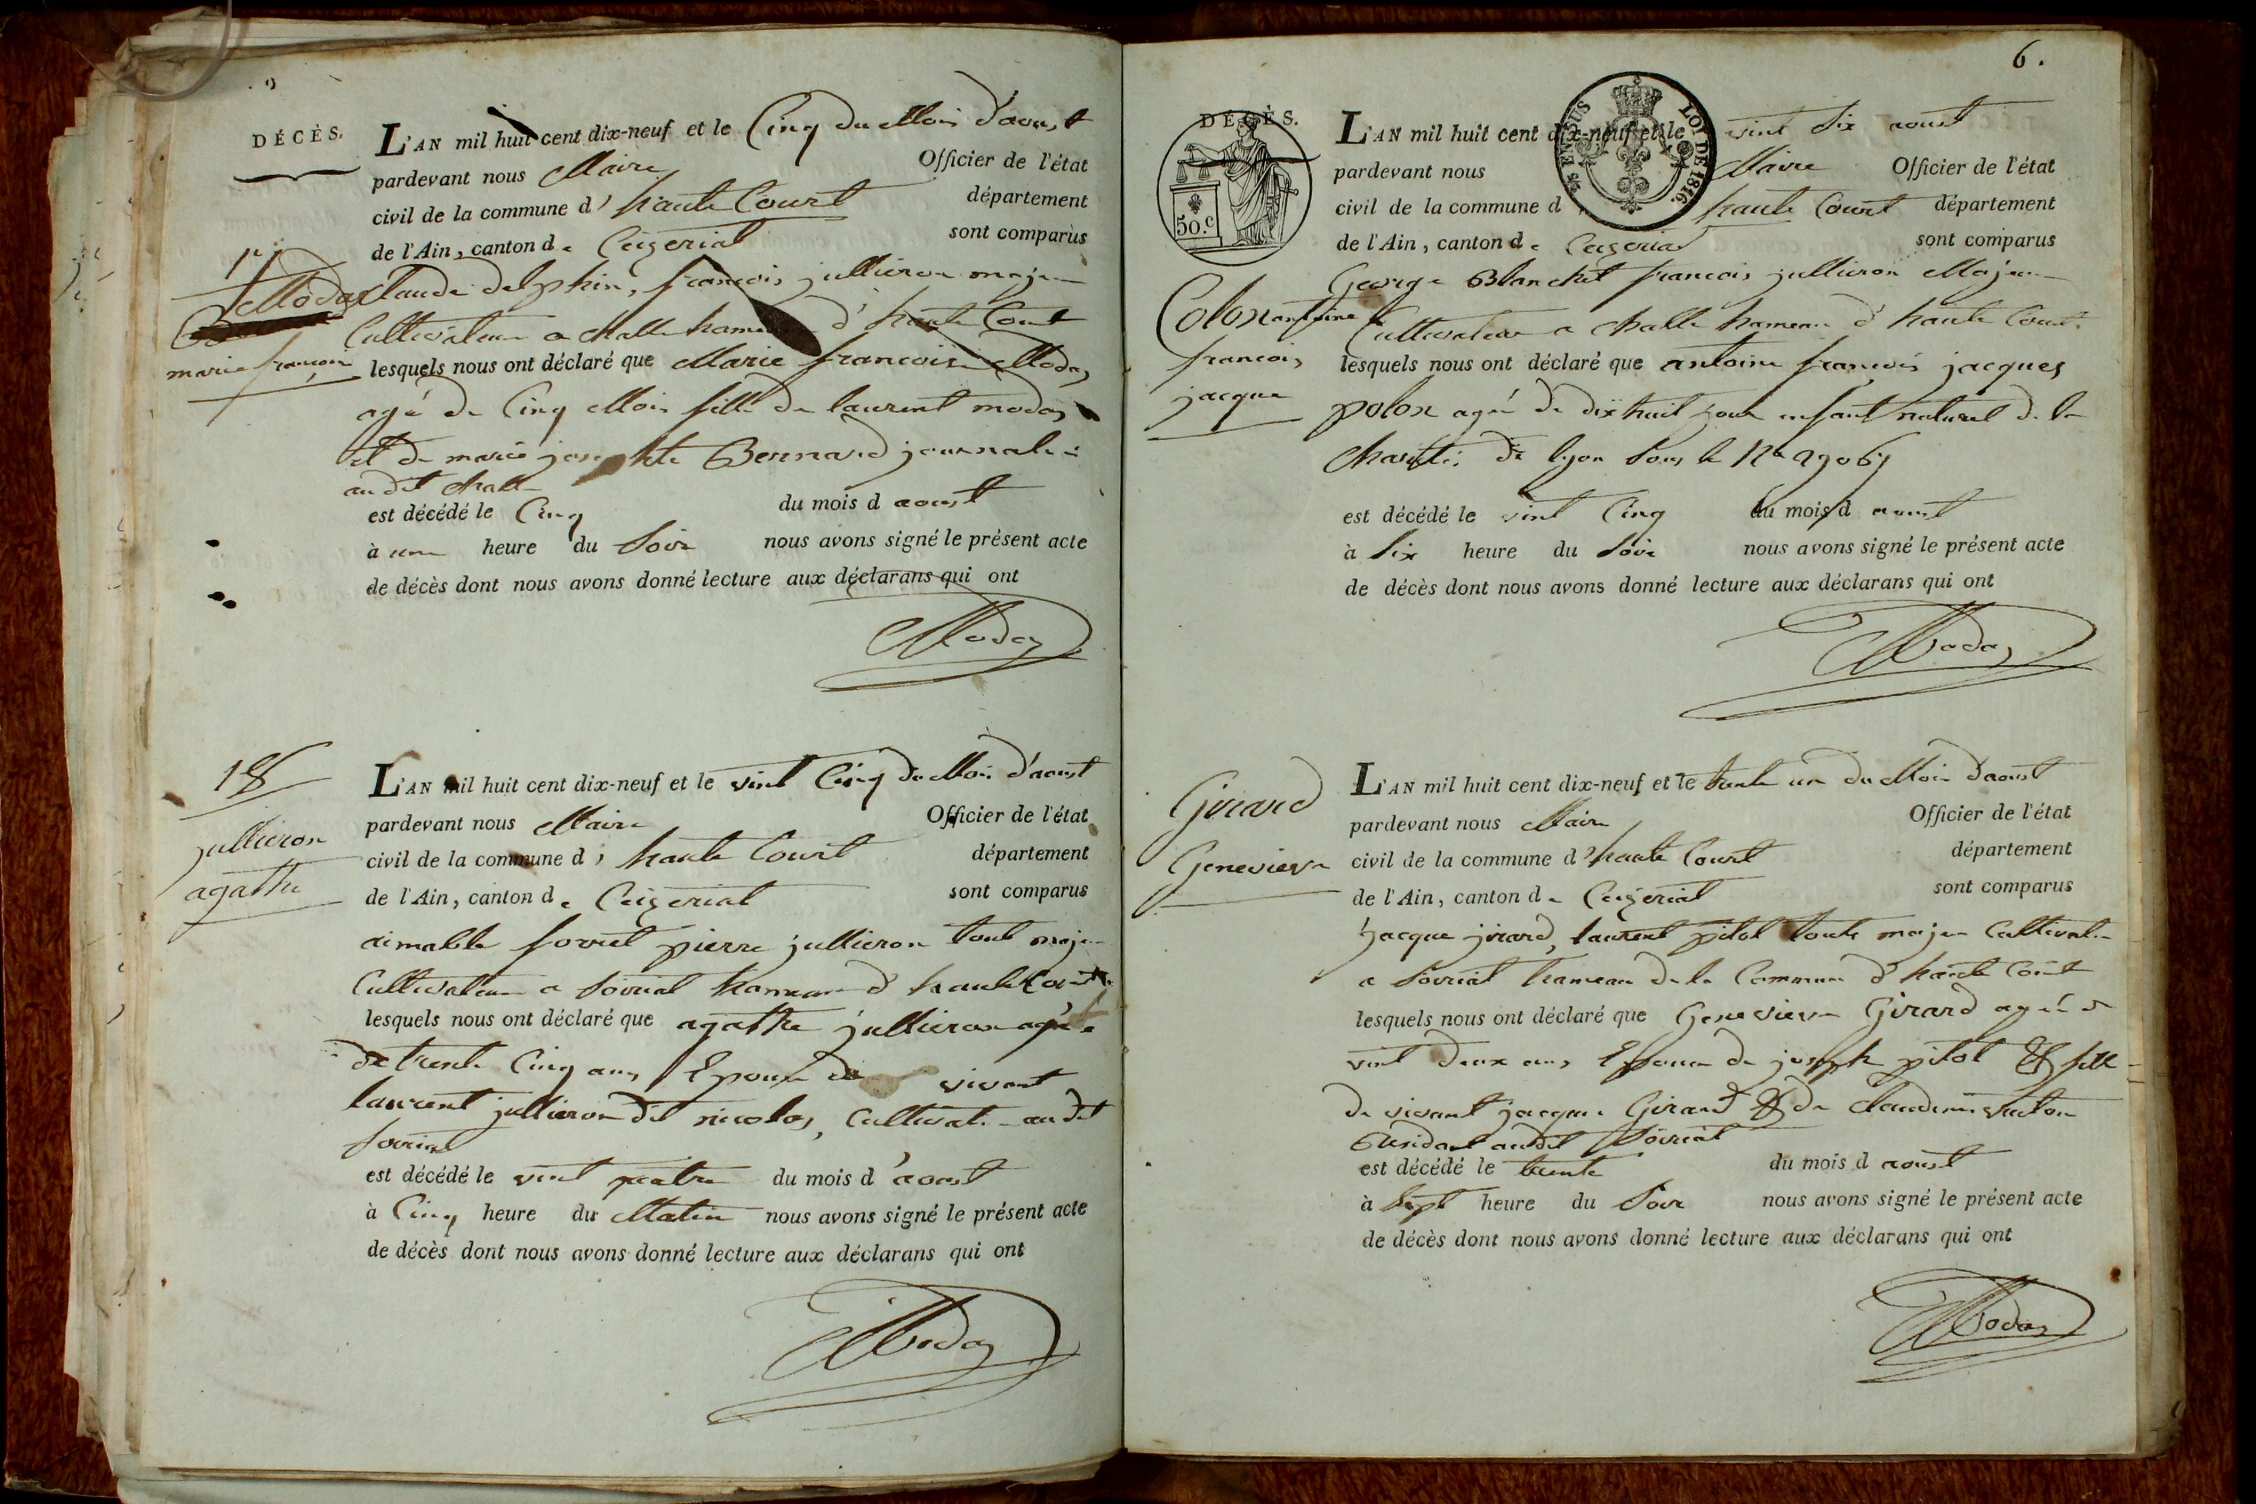 DÉCÈS.
L'AN mil huit cent dix-neuf et le Cinq du Mois d'aoust
pardevant nous Maire Officier de l'état
civil de la commune d' haute Court département
de l'Ain, canton de Ceizeriat sont comparus
Claude delphin, francois jullieron majeur
Cultivateur a challe hameau d' haute Court
lesquels nous ont déclaré que Marie francoise Modas
agé de Cinq Mois fille de laurent modas
et de marie josephte Bernard journalie
audit challe
est décédé le Cinq du mois d aoust
à une heure du Soir nous avons signé le présent acte
de décès dont nous avons donné lecture aux déclarans qui ont
Modas
17
Modas
marie françoise
18
jullieron
agathe
L'AN mil huit cent dix-neuf et le vint Cinq du Mois d'aoust
pardevant nous Maire Officier de l'état
civil de la commune d' haute Court département
de l'Ain, canton de Ceizeriat sont comparus
aimable pierre jullieron tout majeur
Cultivateur a Sovriat hameau d' haute Court
lesquels nous ont déclaré que agathe jullieron agée
de trente Cinq ans Epouse de vivant
laurent jullieron dit nicolas, Cultivat. audit
Sovriat
est décédé le vint quatre du mois d'aoust
à Cinq heure du Matin nous avons signé le présent acte
de décès dont nous avons donné lecture aux déclarans qui ont
Modas
6.
DÉCÈS.
50.c
LOI DE 1816.
L'AN mil huit cent dix-neuf et le vint Six aoust
pardevant nous Maire Officier de l'état
civil de la commune d haute Court département
de l'Ain, canton de Ceizeriat sont comparus
George Blanchet francois jullieron Majeur
Cultivateur a challe hameau d' haute Court
lesquels nous ont déclaré que antoine françois jacques
polox agée de dixhuit jour enfant naturel de la
charité de lyon Sous le
est décédé le vint Cinq du mois d aoust
à Six heure du Soir nous avons signé le présent acte
de décès dont nous avons donné lecture aux déclarans qui ont
Modas
Colox antoine
francois
jacque
Girard
Genevieve
L'AN mil huit cent dix-neuf et le trente un du Mois d'aoust
pardevant nous Maire Officier de l'état
civil de la commune d' haute Court département
de l'Ain, canton de Ceizeriat sont comparus
Jacque jirard, laurent pitot toute majeur Cultivat.
a Sovriat hameau de la Commune d' haute Court
lesquels nous ont déclaré que Genevieve Girard agée de
vint deux ans Epouse de joseph pitot & fille
de vivant jacque Girard & de Claudine
Residant audit Sovriat
est décédé le trente du mois d aoust
à Sept heure du Soir nous avons signé le présent acte
de décès dont nous avons donné lecture aux déclarans qui ont
Modas